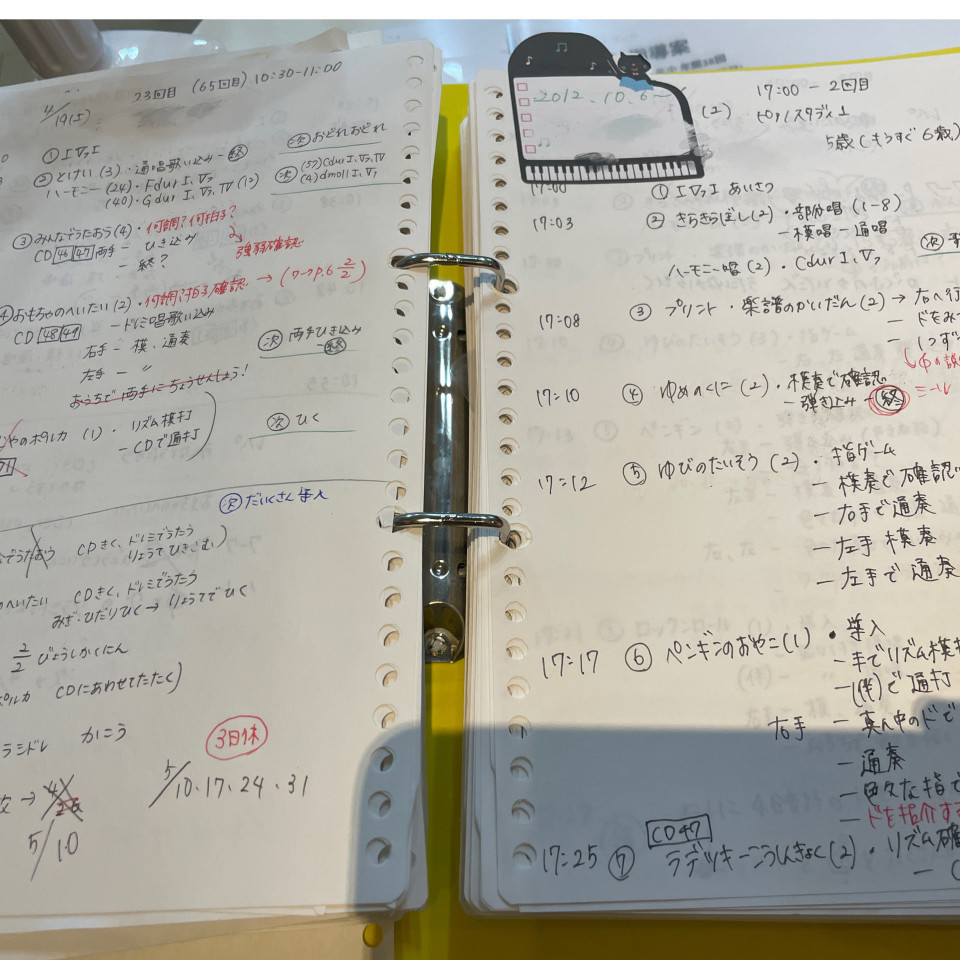 4/19(土) 23回目 (65回目) 10:30-11:00
① Ⅰ Ⅴ₇ Ⅰ
次 おどれおどれ
② とけい (3)・通唱歌い込み - 終
ハーモニー (24)・Fdur Ⅰ、Ⅴ₇
(40)・Gdur Ⅰ、Ⅴ₇、Ⅳ (13)
次 (57) Cdur Ⅰ、Ⅴ₇、Ⅳ
(4) dmoll Ⅰ、Ⅴ₇
③ みんなでうたおう (4)・何調?何拍子?
CD 46 47 両手 - ひき込み
- 終?
強弱確認
④ おもちゃのへいたい (2)・何調?拍子確認 → (ワークp.6 2/2)
CD 48 49 - ドレミ唱歌い込み
右手 - 模、通奏
左手 - 〃
次 両手ひき込み
- 終
おうちで両手にちょうせんしよう!
やのポルカ (1)・リズム模打
- CDで通打
次 ひく
71
次 だいくさん 導入
でうたおう CDきく、ドレミでうたう
りょうてでひきこむ)
のへいたい CDきく、ドレミでうたう
みぎ・ひだりひく→りょうてでひく
2/2 びょうしかくにん
ポルカ CDにあわせてたたく)
ラシドレ かこう
3日休
5/10・17・24・31
→ 4/26
5/10
指導案
2012.10.6
(2)
17:00 - 2回目
5歳(もうすぐ6歳)
17:00 ① Ⅰ Ⅴ₇ Ⅰ あいさつ
17:03 ② きらきらぼし (2)・部分唱 (1-8)
- 模唱 - 通唱
次
ハーモニー唱 (2)・Cdur Ⅰ、Ⅴ₇
17:08 ③ プリント・楽譜のかいだん (2) → 右へ行
- ドをみつ
- 1つず
17:10 ④ ゆめのくに (2)・模奏で確認
- 弾き込み - 終 シール
17:12 ⑤ ゆびのたいそう (2)・指ゲーム
- 模奏で確認
- 右手で通奏
- 左手 模奏
- 左手で 通奏
17:17 ⑥ ペンギンのおやこ (1)・導入
- 手でリズム模打
- (伴)で通打
右手 - 真ん中のドで
- 通奏
- 色々な指で
- ドを指介す
CD47
17:25 ⑦ ラデツキーこうしんきょく (2)・リズム確